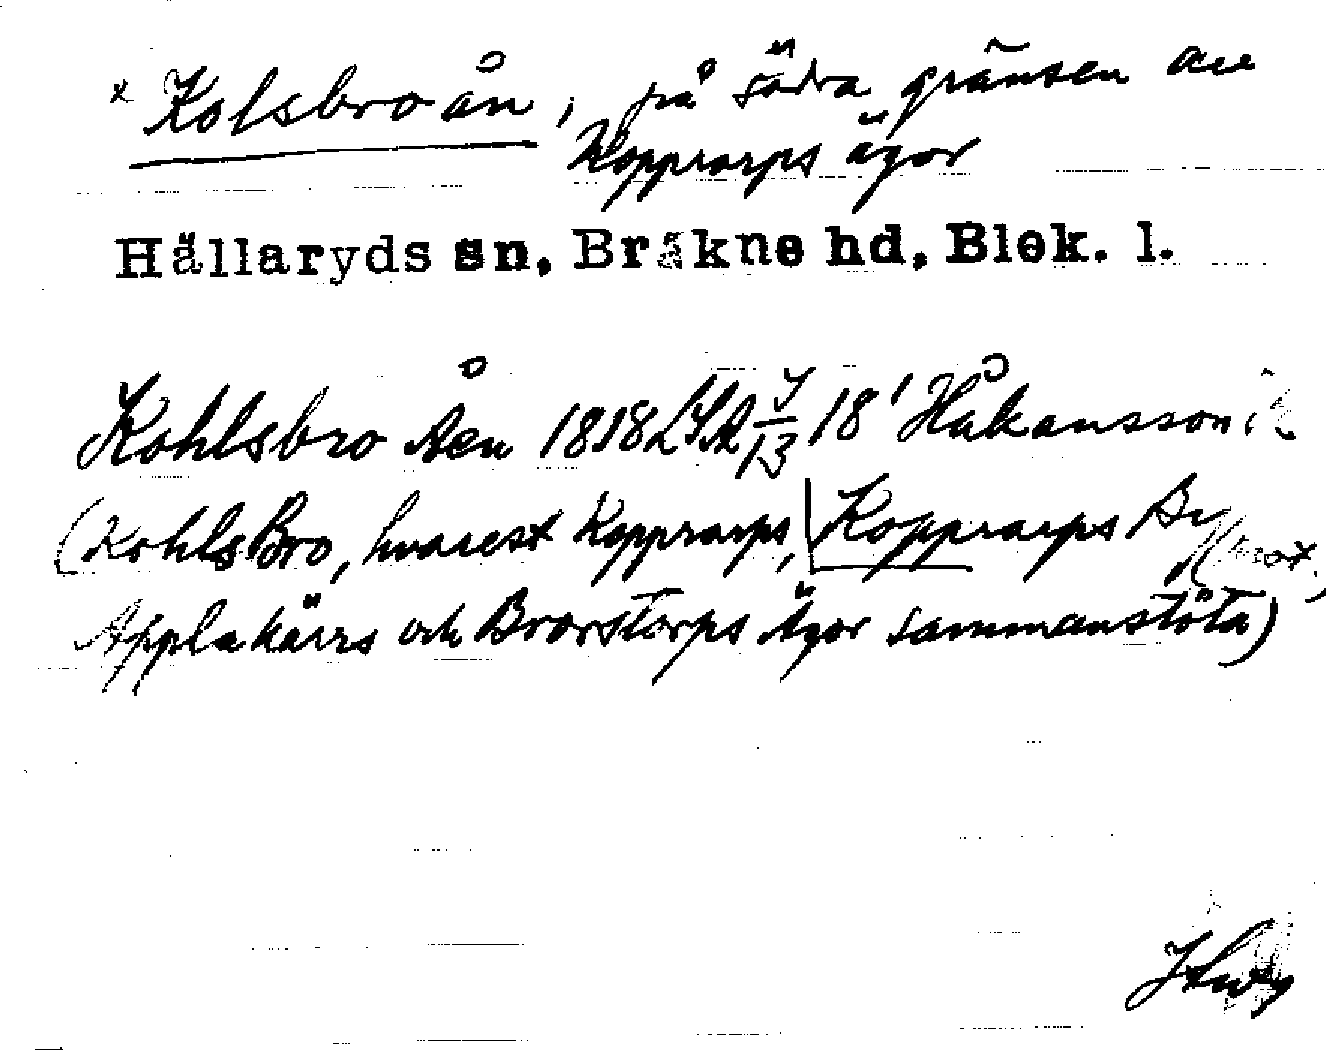 * Kolsbroån, på södra gränsen av
Kopprarps ägor
Hällaryds sn, Bräkne hd, Blek. l.
Kohlsbro Åen 1818 LSA 18' Håkansson i
(Kohls Bro, hvarest Kopprarps, Kopprarps By
Applekärrs och Brorstorps Ägor sammanstöta)